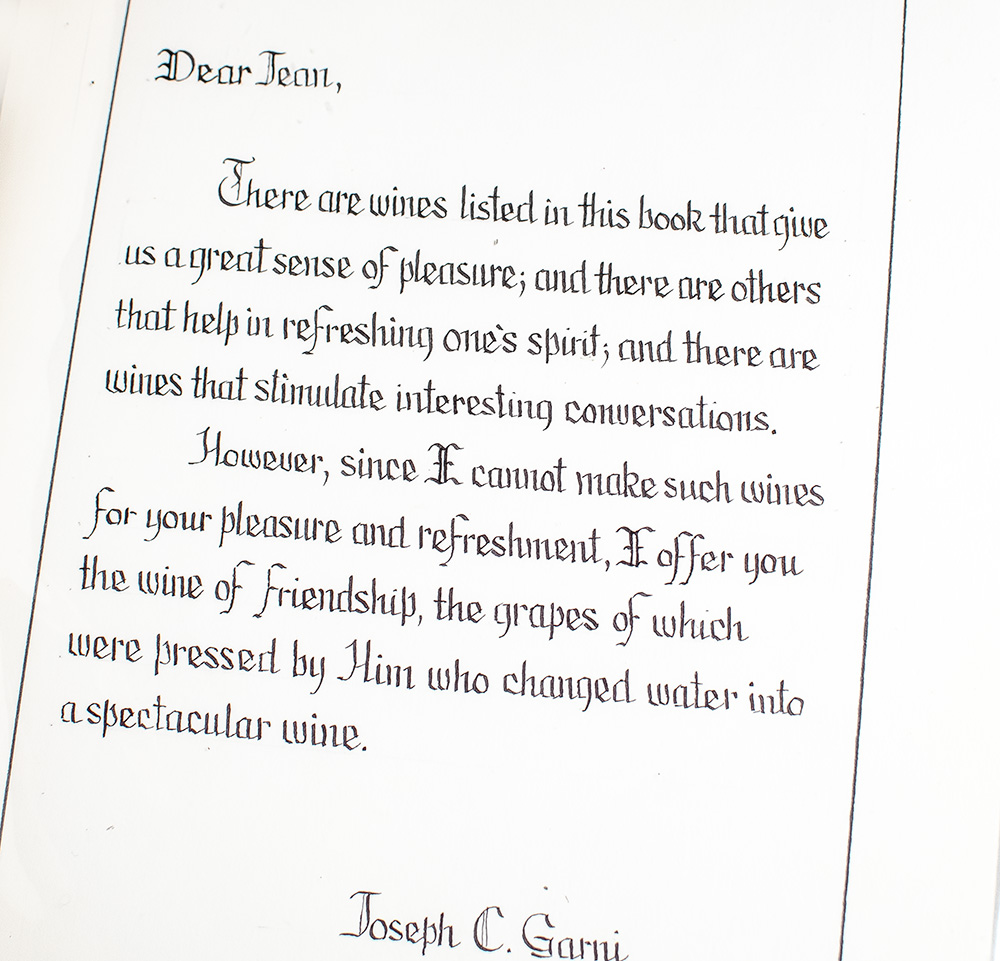 Dear Jean,
There are wines listed in this book that give
us a great sense of pleasure; and there are others
that help in refreshing one's spirit; and there are
wines that stimulate interesting conversations.
However, since I cannot make such wines
for your pleasure and refreshment, I offer you
the wine of friendship, the grapes of which
were pressed by Him who changed water into
a spectacular wine.
Joseph C. Garni